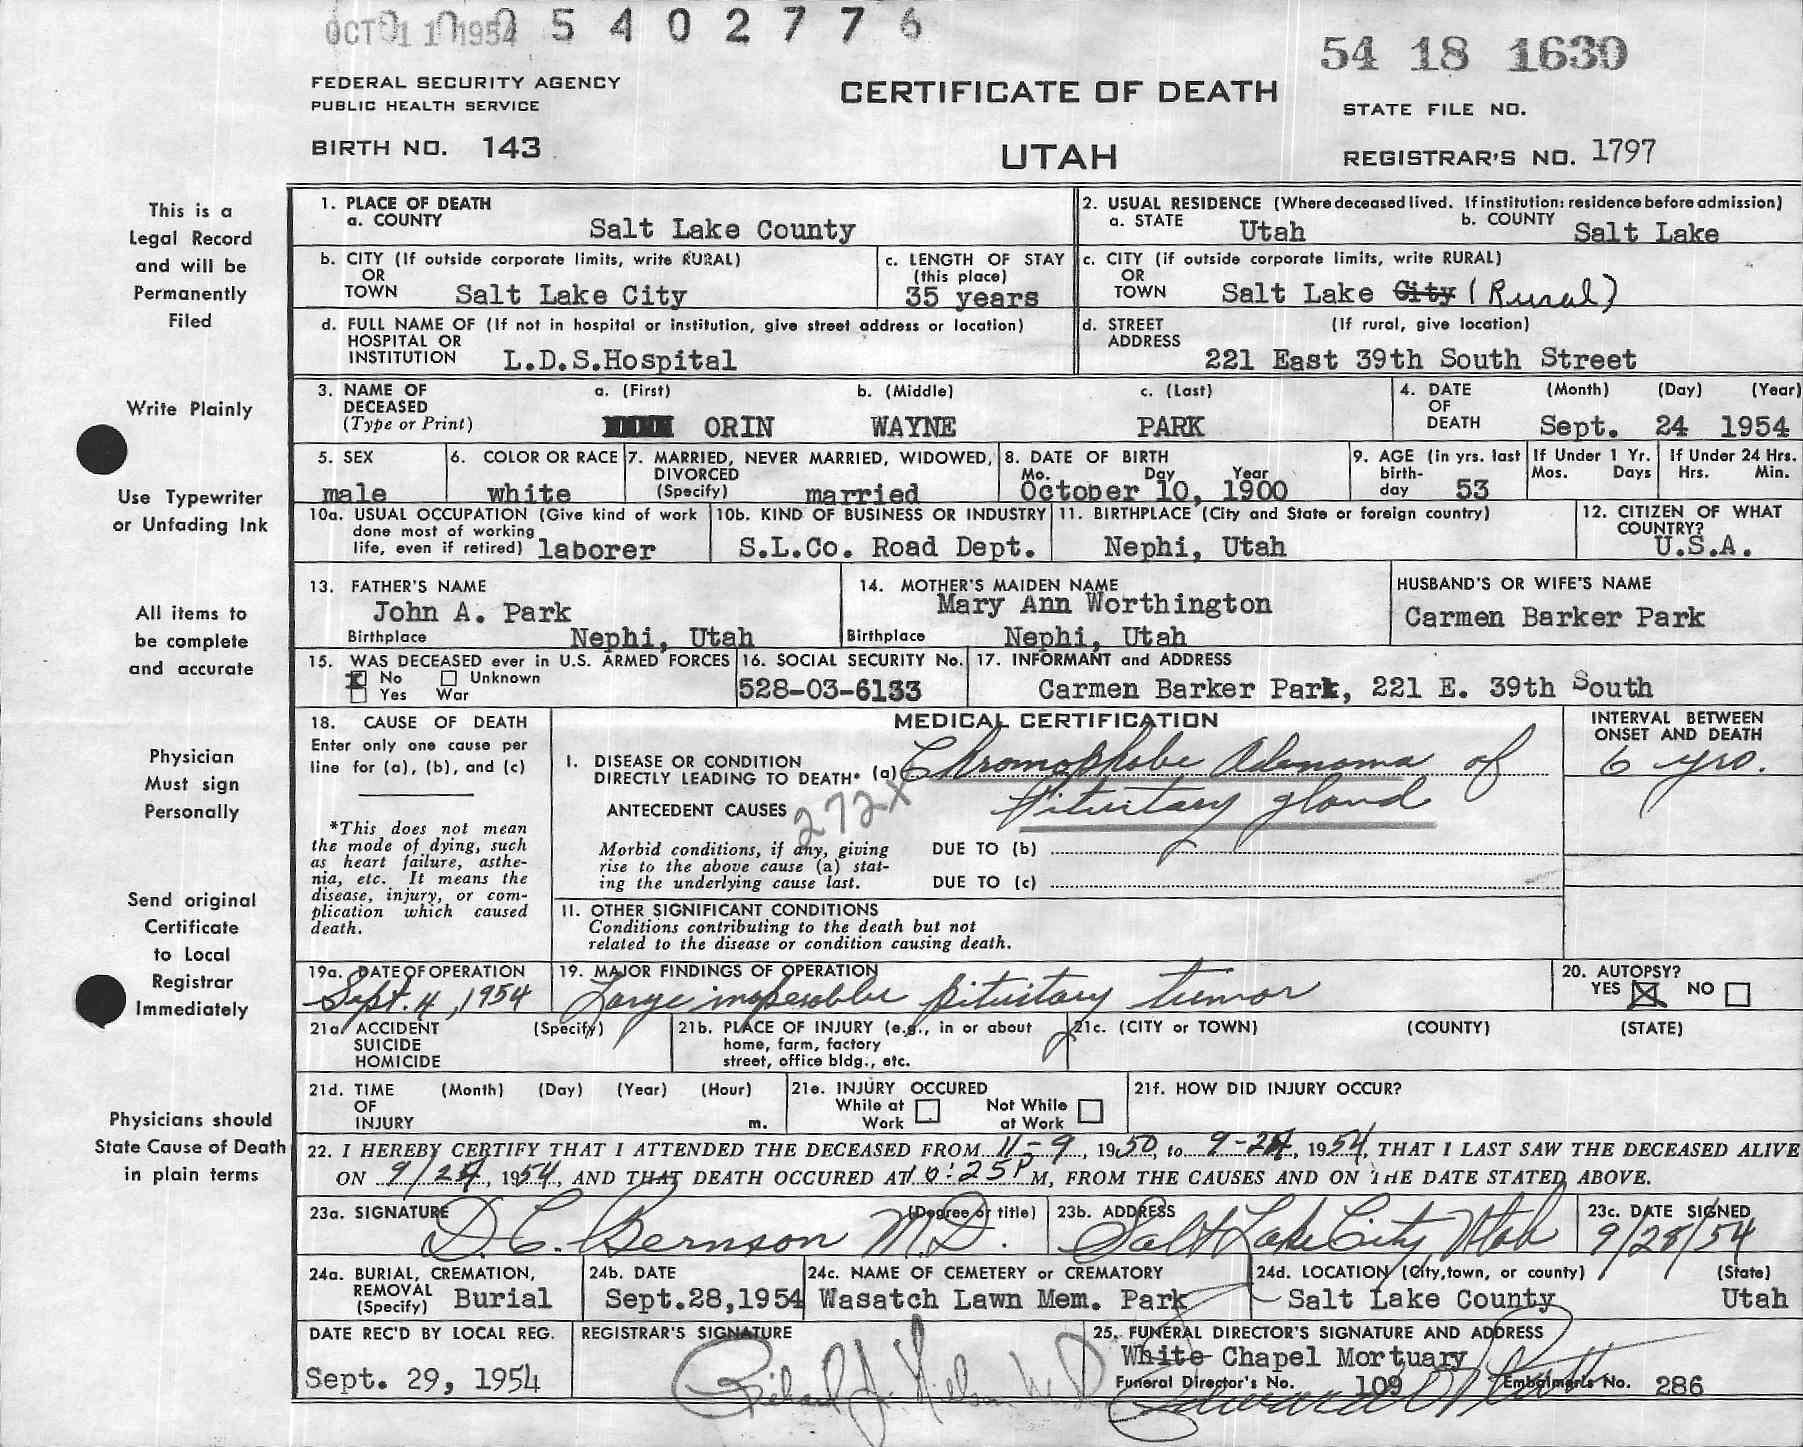 OCT 11 1954 5 4 0 2 7 7 6
54 18 1630
FEDERAL SECURITY AGENCY
PUBLIC HEALTH SERVICE
CERTIFICATE OF DEATH
STATE FILE NO.
BIRTH NO. 143
UTAH
REGISTRAR'S NO. 1797
This is a
Legal Record
and will be
Permanently
Filed
Write Plainly
Use Typewriter
or Unfading Ink
All items to
be complete
and accurate
Physician
Must sign
Personally
Send original
Certificate
to Local
Registrar
Immediately
Physicians should
State Cause of Death
in plain terms
1. PLACE OF DEATH
a. COUNTY Salt Lake County
2. USUAL RESIDENCE (Where deceased lived. If institution: residence before admission)
a. STATE Utah b. COUNTY Salt Lake
b. CITY (If outside corporate limits, write RURAL)
OR
TOWN Salt Lake City
c. LENGTH OF STAY
(this place)
35 years
c. CITY (if outside corporate limits, write RURAL)
OR
TOWN Salt Lake City (Rural)
d. FULL NAME OF (If not in hospital or institution, give street address or location)
HOSPITAL OR
INSTITUTION L.D.S.Hospital
d. STREET (If rural, give location)
ADDRESS
221 East 39th South Street
3. NAME OF a. (First) b. (Middle) c. (Last)
DECEASED
(Type or Print) ORIN WAYNE PARK
4. DATE (Month) (Day) (Year)
OF
DEATH Sept. 24 1954
5. SEX
male
6. COLOR OR RACE
white
7. MARRIED, NEVER MARRIED, WIDOWED,
DIVORCED
(Specify) married
8. DATE OF BIRTH
Mo. Day Year
October 10, 1900
9. AGE (in yrs. last
birth-
day 53
If Under 1 Yr.
Mos. Days
If Under 24 Hrs.
Hrs. Min.
10a. USUAL OCCUPATION (Give kind of work
done most of working
life, even if retired) laborer
10b. KIND OF BUSINESS OR INDUSTRY
S.L.Co. Road Dept.
11. BIRTHPLACE (City and State or foreign country)
Nephi, Utah
12. CITIZEN OF WHAT
COUNTRY?
U.S.A.
13. FATHER'S NAME
John A. Park
Birthplace Nephi, Utah
14. MOTHER'S MAIDEN NAME
Mary Ann Worthington
Birthplace Nephi, Utah
HUSBAND'S OR WIFE'S NAME
Carmen Barker Park
15. WAS DECEASED ever in U.S. ARMED FORCES
No Unknown
Yes War
16. SOCIAL SECURITY No.
528-03-6133
17. INFORMANT and ADDRESS
Carmen Barker Park, 221 E. 39th South
18. CAUSE OF DEATH
Enter only one cause per
line for (a), (b), and (c)
*This does not mean
the mode of dying, such
as heart failure, asthe-
nia, etc. It means the
disease, injury, or com-
plication which caused
death.
MEDICAL CERTIFICATION
INTERVAL BETWEEN
ONSET AND DEATH
I. DISEASE OR CONDITION
DIRECTLY LEADING TO DEATH* (a) Chromophobe Adenoma of
6 yrs.
Pituitary gland
ANTECEDENT CAUSES 272X
Morbid conditions, if any, giving
rise to the above cause (a) stat-
ing the underlying cause last.
DUE TO (b)
DUE TO (c)
11. OTHER SIGNIFICANT CONDITIONS
Conditions contributing to the death but not
related to the disease or condition causing death.
19a. DATE OF OPERATION
Sept. 4, 1954
19. MAJOR FINDINGS OF OPERATION
Large inoperable pituitary tumor
20. AUTOPSY?
YES NO
21a ACCIDENT (Specify)
SUICIDE
HOMICIDE
21b. PLACE OF INJURY (e.g., in or about
home, farm, factory
street, office bldg., etc.
21c. (CITY or TOWN) (COUNTY) (STATE)
21d. TIME (Month) (Day) (Year) (Hour)
OF
INJURY m.
21e. INJURY OCCURED
While at Not While
Work at Work
21f. HOW DID INJURY OCCUR?
22. I HEREBY CERTIFY THAT I ATTENDED THE DECEASED FROM 11-9, 1950, to 9-24, 1954, THAT I LAST SAW THE DECEASED ALIVE
ON 9/24, 1954, AND THAT DEATH OCCURED AT 10:25P M, FROM THE CAUSES AND ON THE DATE STATED ABOVE.
23a. SIGNATURE (Degree or title)
D.C. Bernson M.D.
23b. ADDRESS
Salt Lake City, Utah
23c. DATE SIGNED
9/28/54
24a. BURIAL, CREMATION,
REMOVAL
(Specify) Burial
24b. DATE
Sept.28,1954
24c. NAME OF CEMETERY or CREMATORY
Wasatch Lawn Mem. Park
24d. LOCATION (City, town, or county) (State)
Salt Lake County Utah
DATE REC'D BY LOCAL REG.
Sept. 29, 1954
REGISTRAR'S SIGNATURE
Richard J. Nielson M.D.
25. FUNERAL DIRECTOR'S SIGNATURE AND ADDRESS
White Chapel Mortuary
Funeral Director's No. 109 Embalmer's No. 286